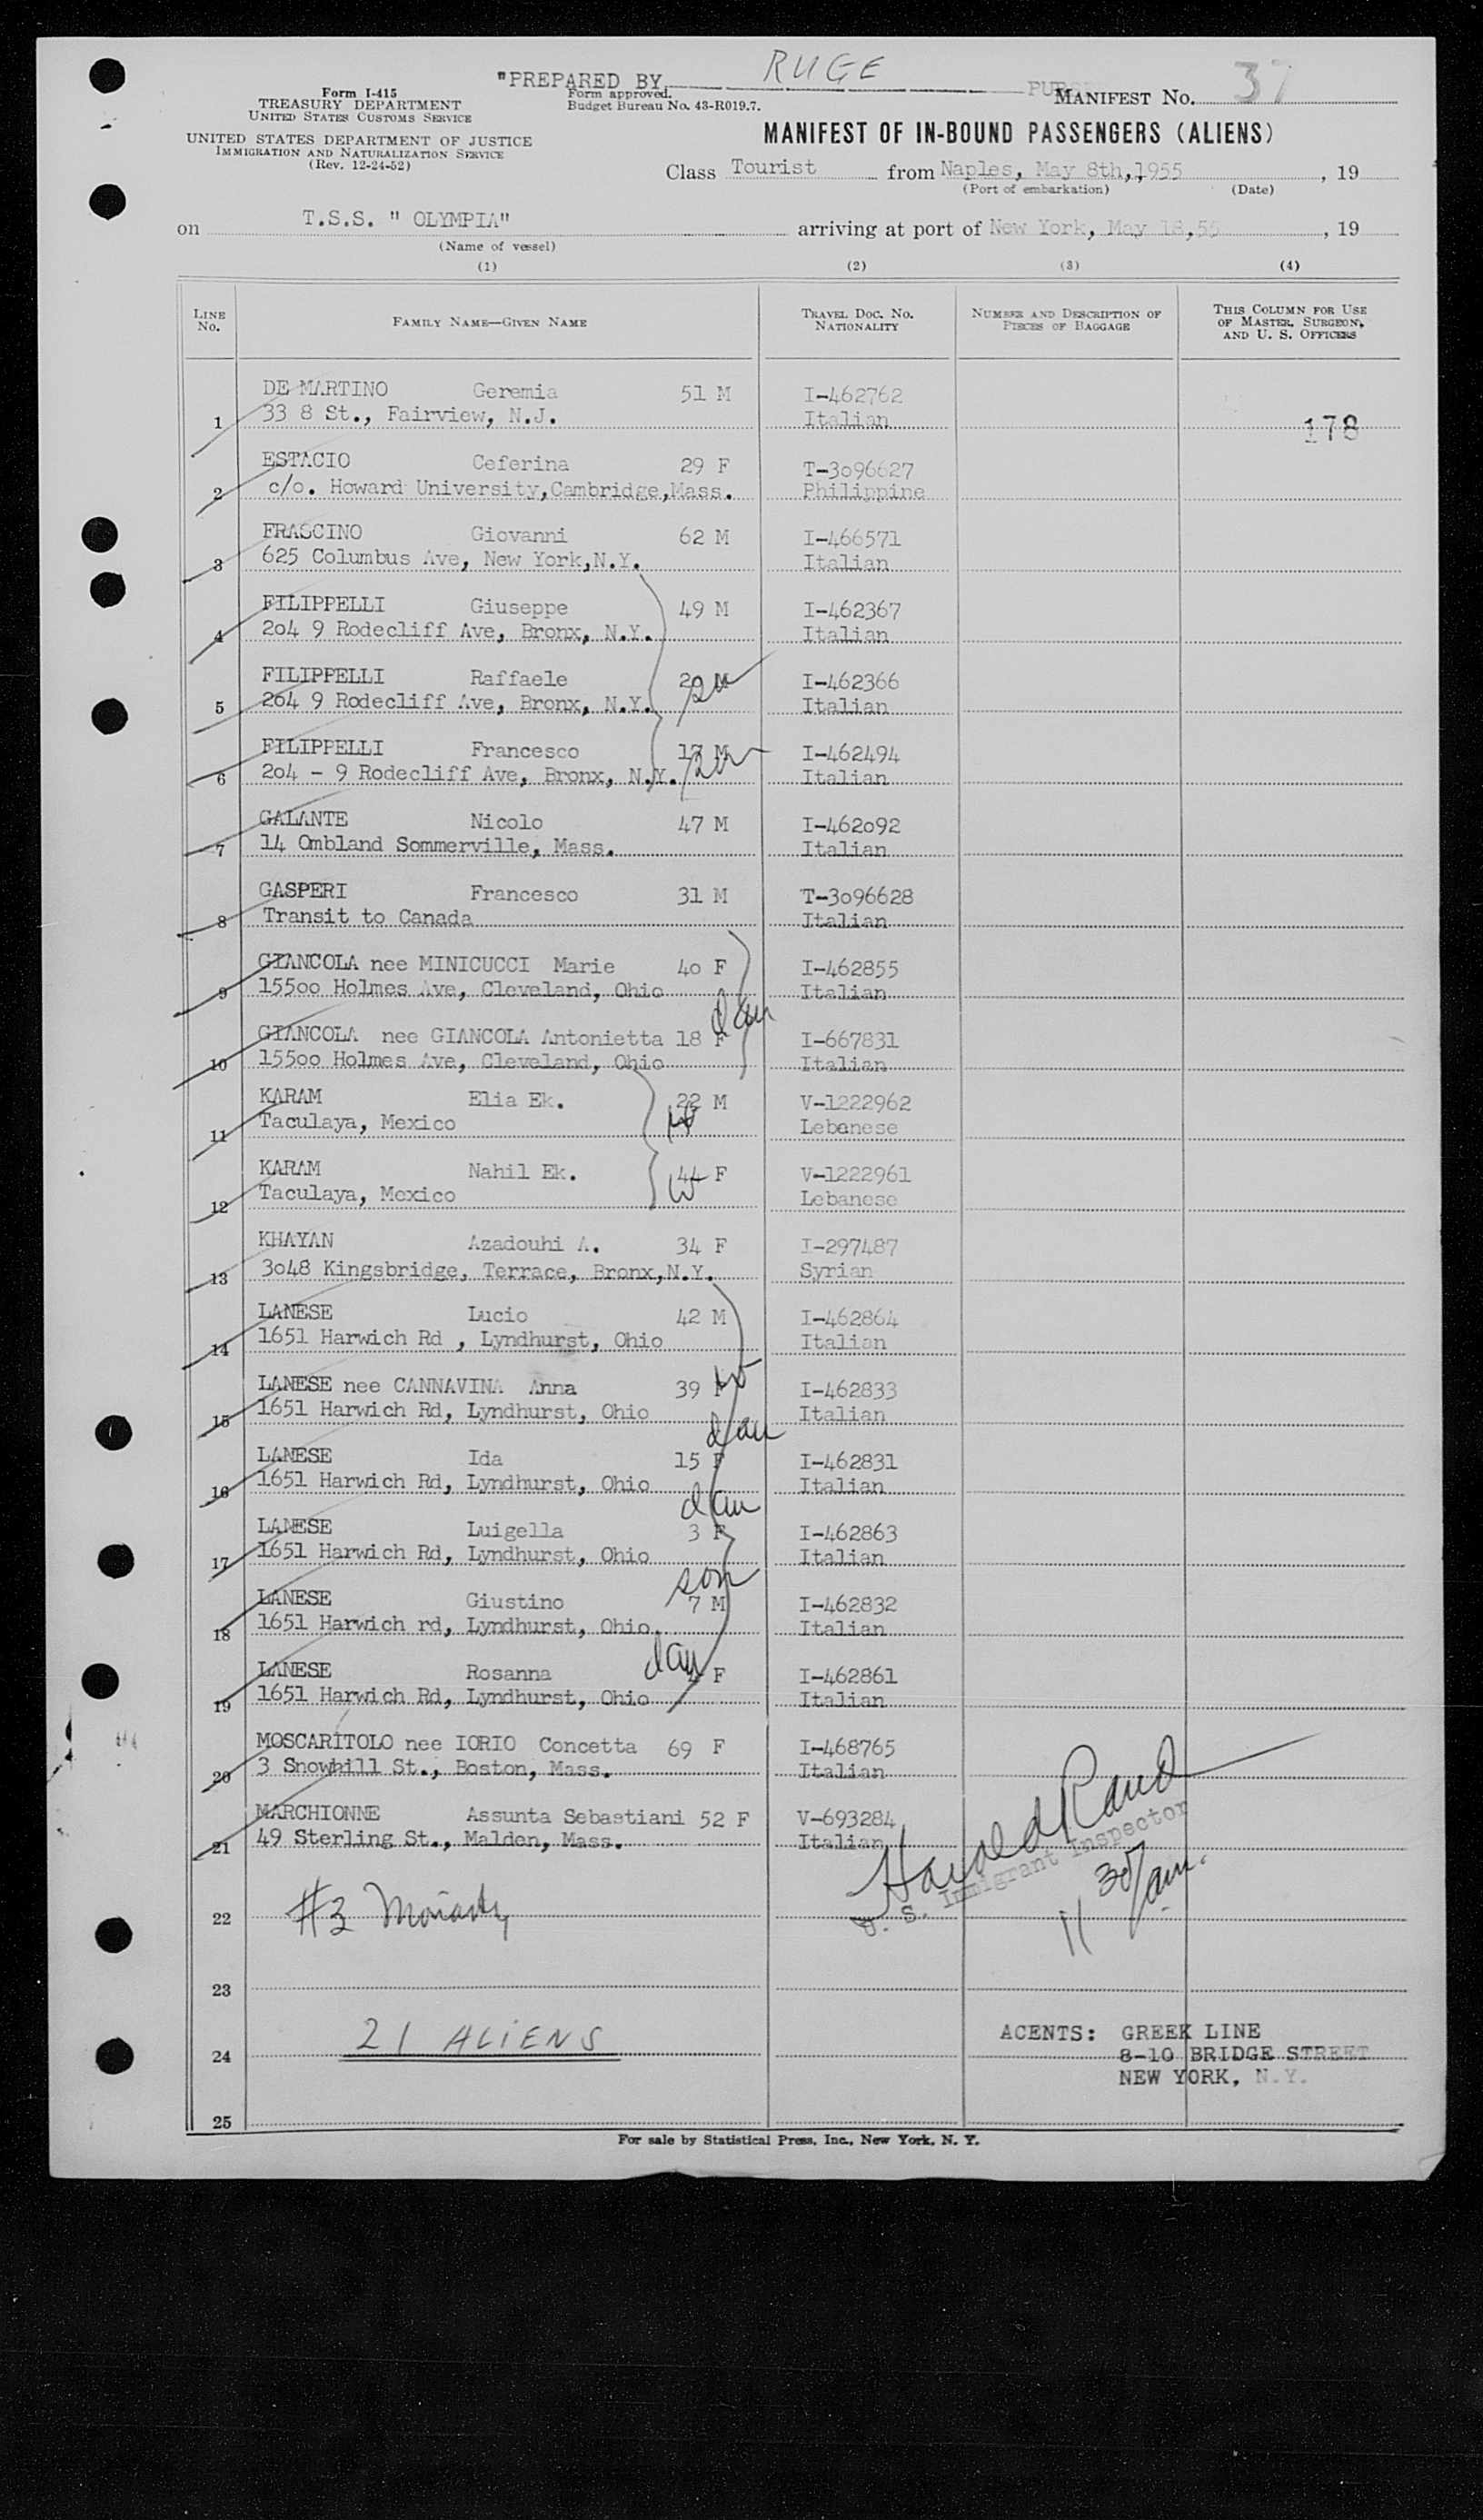 "PREPARED BY RUGE PUR
Form I-415
TREASURY DEPARTMENT
UNITED STATES CUSTOMS SERVICE
Form approved.
Budget Bureau No. 43-R019.7.
MANIFEST NO. 37
UNITED STATES DEPARTMENT OF JUSTICE
IMMIGRATION AND NATURALIZATION SERVICE
(Rev. 12-24-52)
MANIFEST OF IN-BOUND PASSENGERS (ALIENS)
Class Tourist from Naples, May 8th, 1955, 19
(Port of embarkation) (Date)
on T.S.S. " OLYMPIA" arriving at port of New York, May 18,55, 19
(Name of vessel)
(1) (2) (3) (4)
LINE NO. FAMILY NAME—GIVEN NAME TRAVEL DOC. NO. NATIONALITY NUMBER AND DESCRIPTION OF PIECES OF BAGGAGE THIS COLUMN FOR USE OF MASTER, SURGEON, AND U. S. OFFICERS
DE MARTINO Geremia 51 M I-462762
1 33 8 St., Fairview, N.J. Italian 178
ESTACIO Ceferina 29 F T-3o96627
2 c/o. Howard University,Cambridge,Mass. Philippine
FRASCINO Giovanni 62 M I-466571
3 625 Columbus Ave, New York,N.Y. Italian
FILIPPELLI Giuseppe 49 M I-462367
4 2o4 9 Rodecliff Ave, Bronx, N.Y. Italian
FILIPPELLI Raffaele 20 M I-462366
5 2o4 9 Rodecliff Ave, Bronx, N.Y. Italian
FILIPPELLI Francesco 17 M I-462494
6 2o4 - 9 Rodecliff Ave, Bronx, N.Y. Italian
GALANTE Nicolo 47 M I-462o92
7 14 Ombland Sommerville, Mass. Italian
GASPERI Francesco 31 M T-3o96628
8 Transit to Canada Italian
GIANCOLA nee MINICUCCI Marie 4o F I-462855
9 155oo Holmes Ave, Cleveland, Ohio Italian
dau
GIANCOLA nee GIANCOLA Antonietta 18 F I-667831
10 155oo Holmes Ave, Cleveland, Ohio Italian
KARAM Elia Ek. 22 M V-1222962
11 Taculaya, Mexico Lebanese
KARAM Nahil Ek. 44 F V-1222961
12 Taculaya, Mexico W Lebanese
KHAYAN Azadouhi A. 34 F I-297487
13 3o48 Kingsbridge, Terrace, Bronx,N.Y. Syrian
LANESE Lucio 42 M I-462864
14 1651 Harwich Rd , Lyndhurst, Ohio Italian
LANESE nee CANNAVINA Anna 39 F W I-462833
15 1651 Harwich Rd, Lyndhurst, Ohio Italian
dau
LANESE Ida 15 F I-462831
16 1651 Harwich Rd, Lyndhurst, Ohio Italian
dau
LANESE Luigella 3 F I-462863
17 1651 Harwich Rd, Lyndhurst, Ohio Italian
son
LANESE Giustino 7 M I-462832
18 1651 Harwich rd, Lyndhurst, Ohio. Italian
dau
LANESE Rosanna F I-462861
19 1651 Harwich Rd, Lyndhurst, Ohio Italian
MOSCARITOLO nee IORIO Concetta 69 F I-468765
20 3 Snowhill St., Boston, Mass. Italian
MARCHIONNE Assunta Sebastiani 52 F V-693284
21 49 Sterling St., Malden, Mass. Italian
Harold Rand
U. S. Immigrant Inspector
11 30/am.
22 #3 Moriarty
23
24 21 ALIENS
ACENTS: GREEK LINE
8-10 BRIDGE STREET
NEW YORK, N.Y.
25
For sale by Statistical Press, Inc., New York, N. Y.